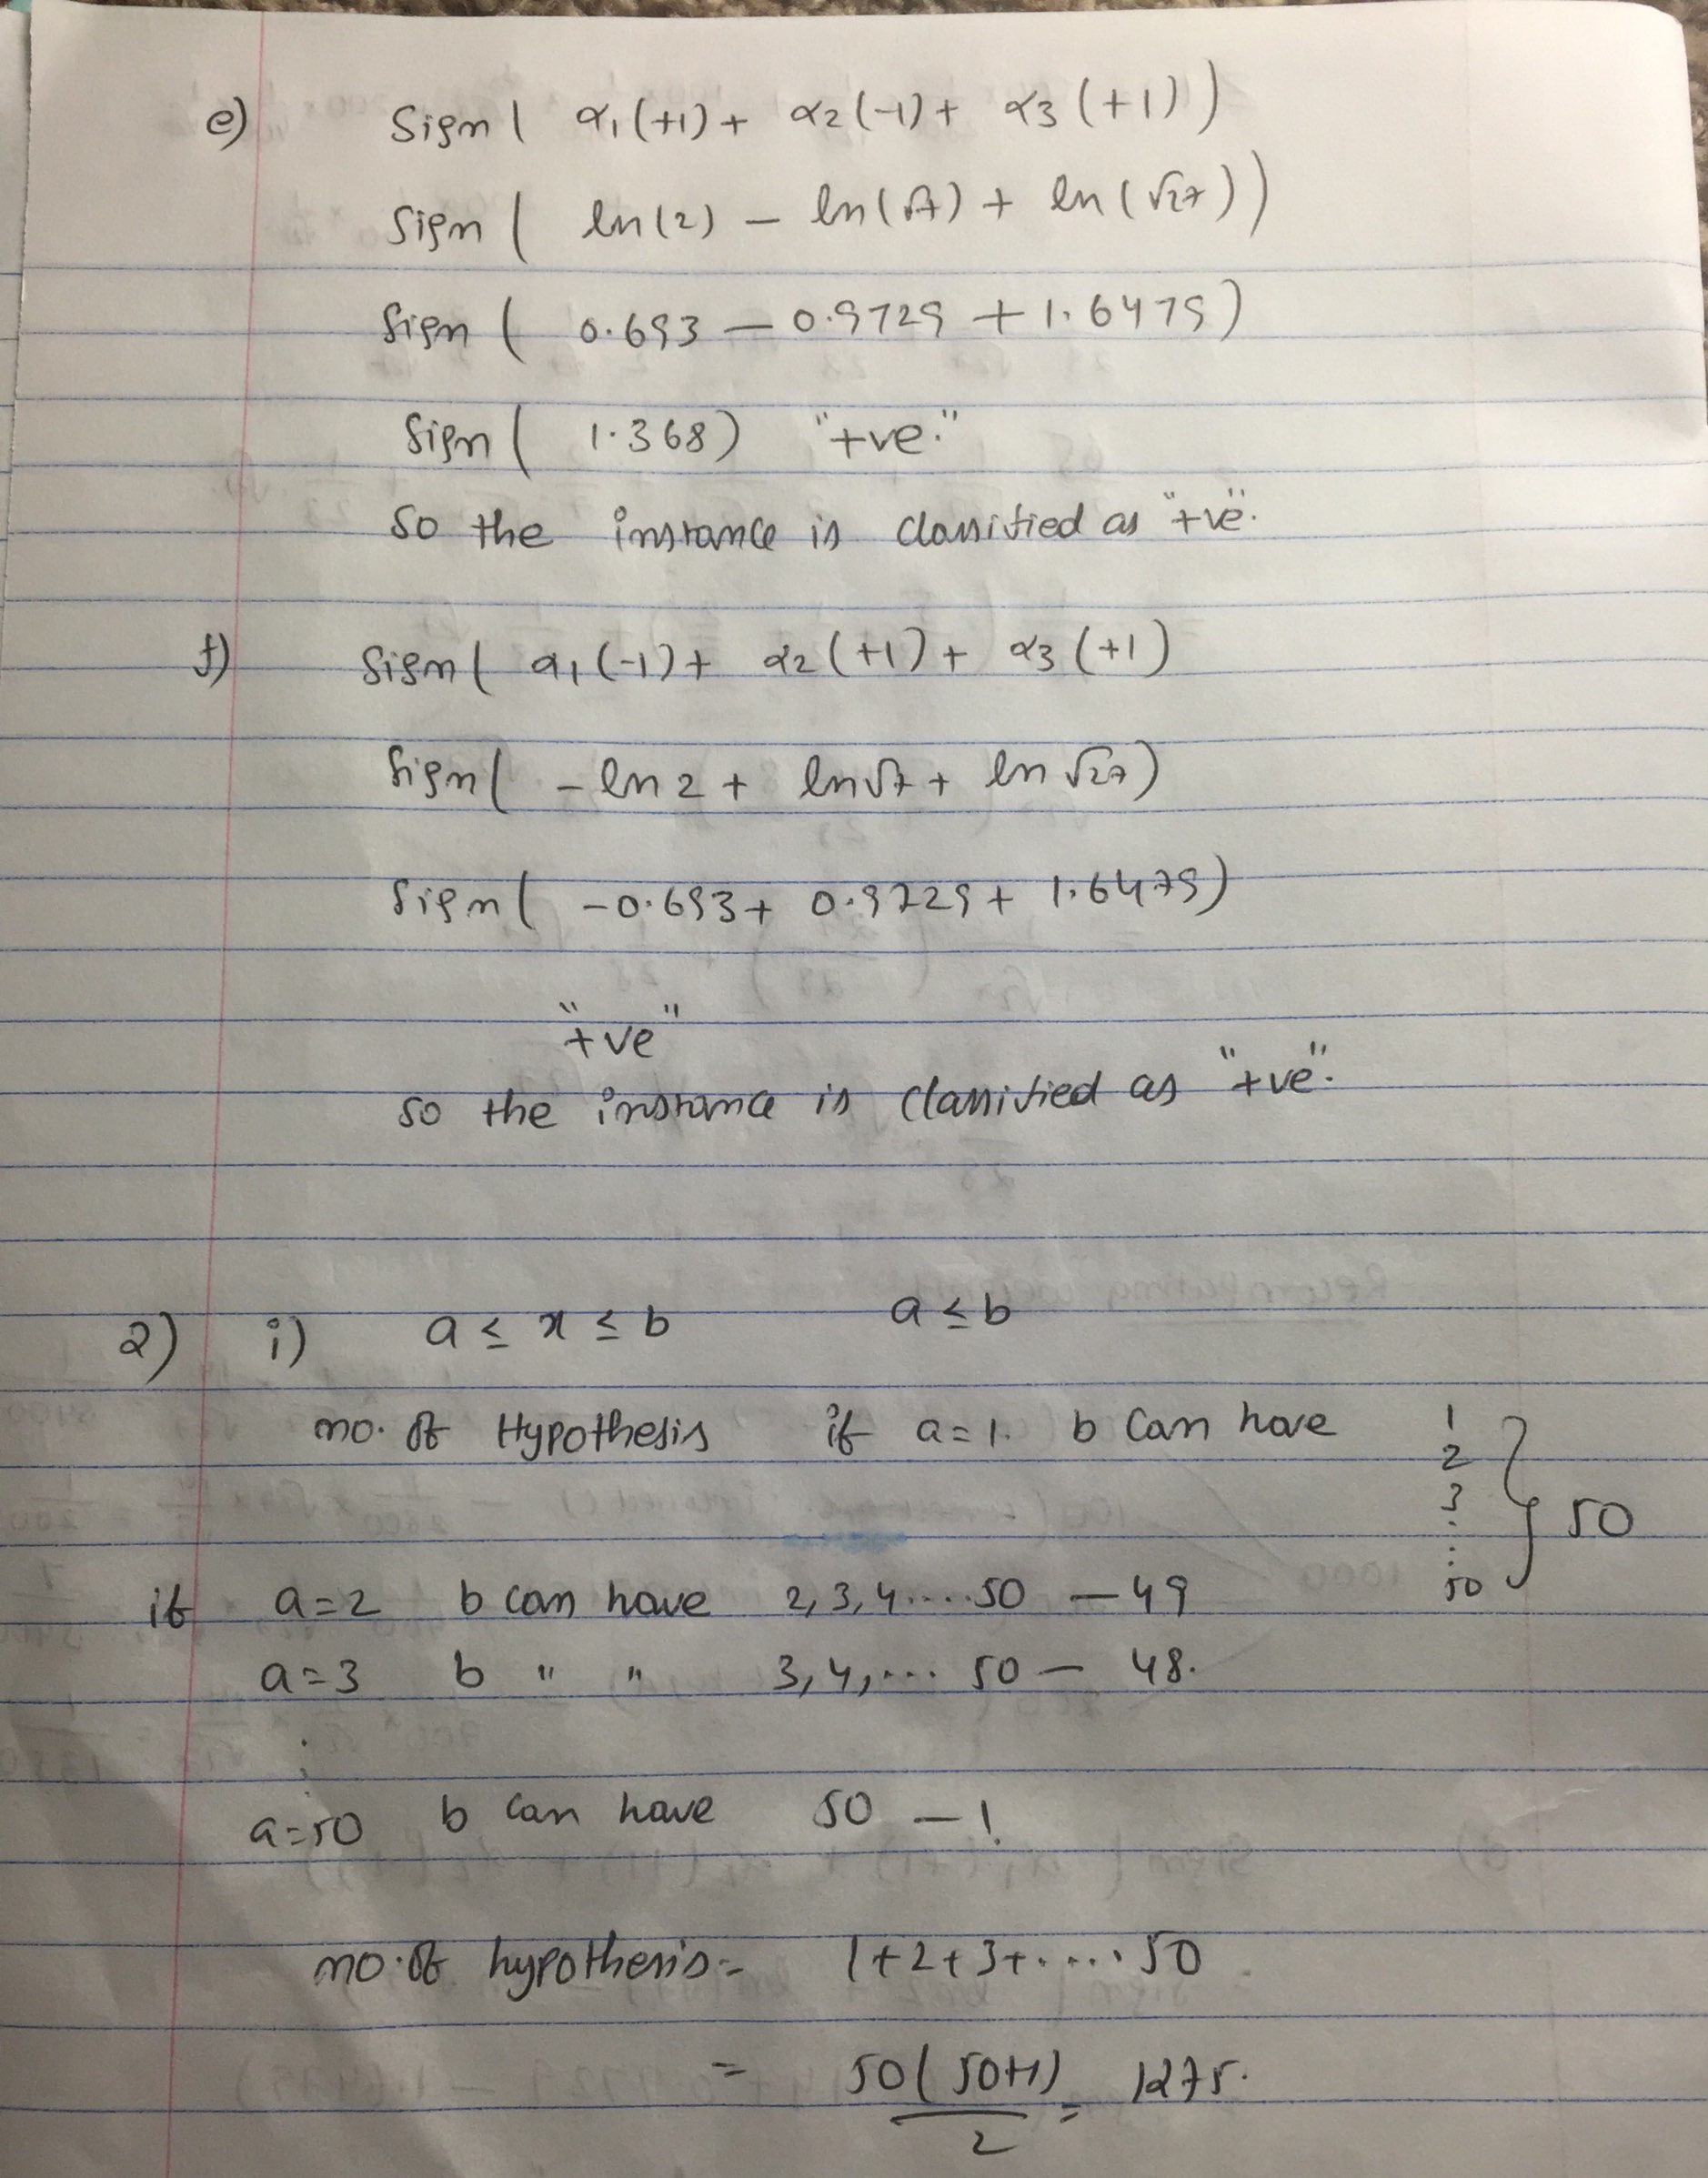 e) Sign ( α1(+1) + α2(-1) + α3(+1))
Sign ( ln(2) – ln(√7) + ln(√27))
Sign ( 0.693 – 0.9729 + 1.6479)
Sign ( 1.368) "+ve."
So the instance is classified as "+ve".
f) Sign( α1(-1) + α2(+1) + α3(+1)
Sign( – ln 2 + ln√7 + ln √27)
Sign( -0.693 + 0.9729 + 1.6479)
"+ve"
so the instance is classified as "+ve".
2) i) a ≤ x ≤ b a ≤ b
no. of Hypothesis if a=1. b can have 1
2
3
:
:
50 } 50
if a=2 b can have 2,3,4....50 – 49
a=3 b " " 3,4,... 50 – 48.
:
a=50 b can have 50 – 1.
no. of hypothesis = 1+2+3+....50
= 50(50+1)/2 = 1275.